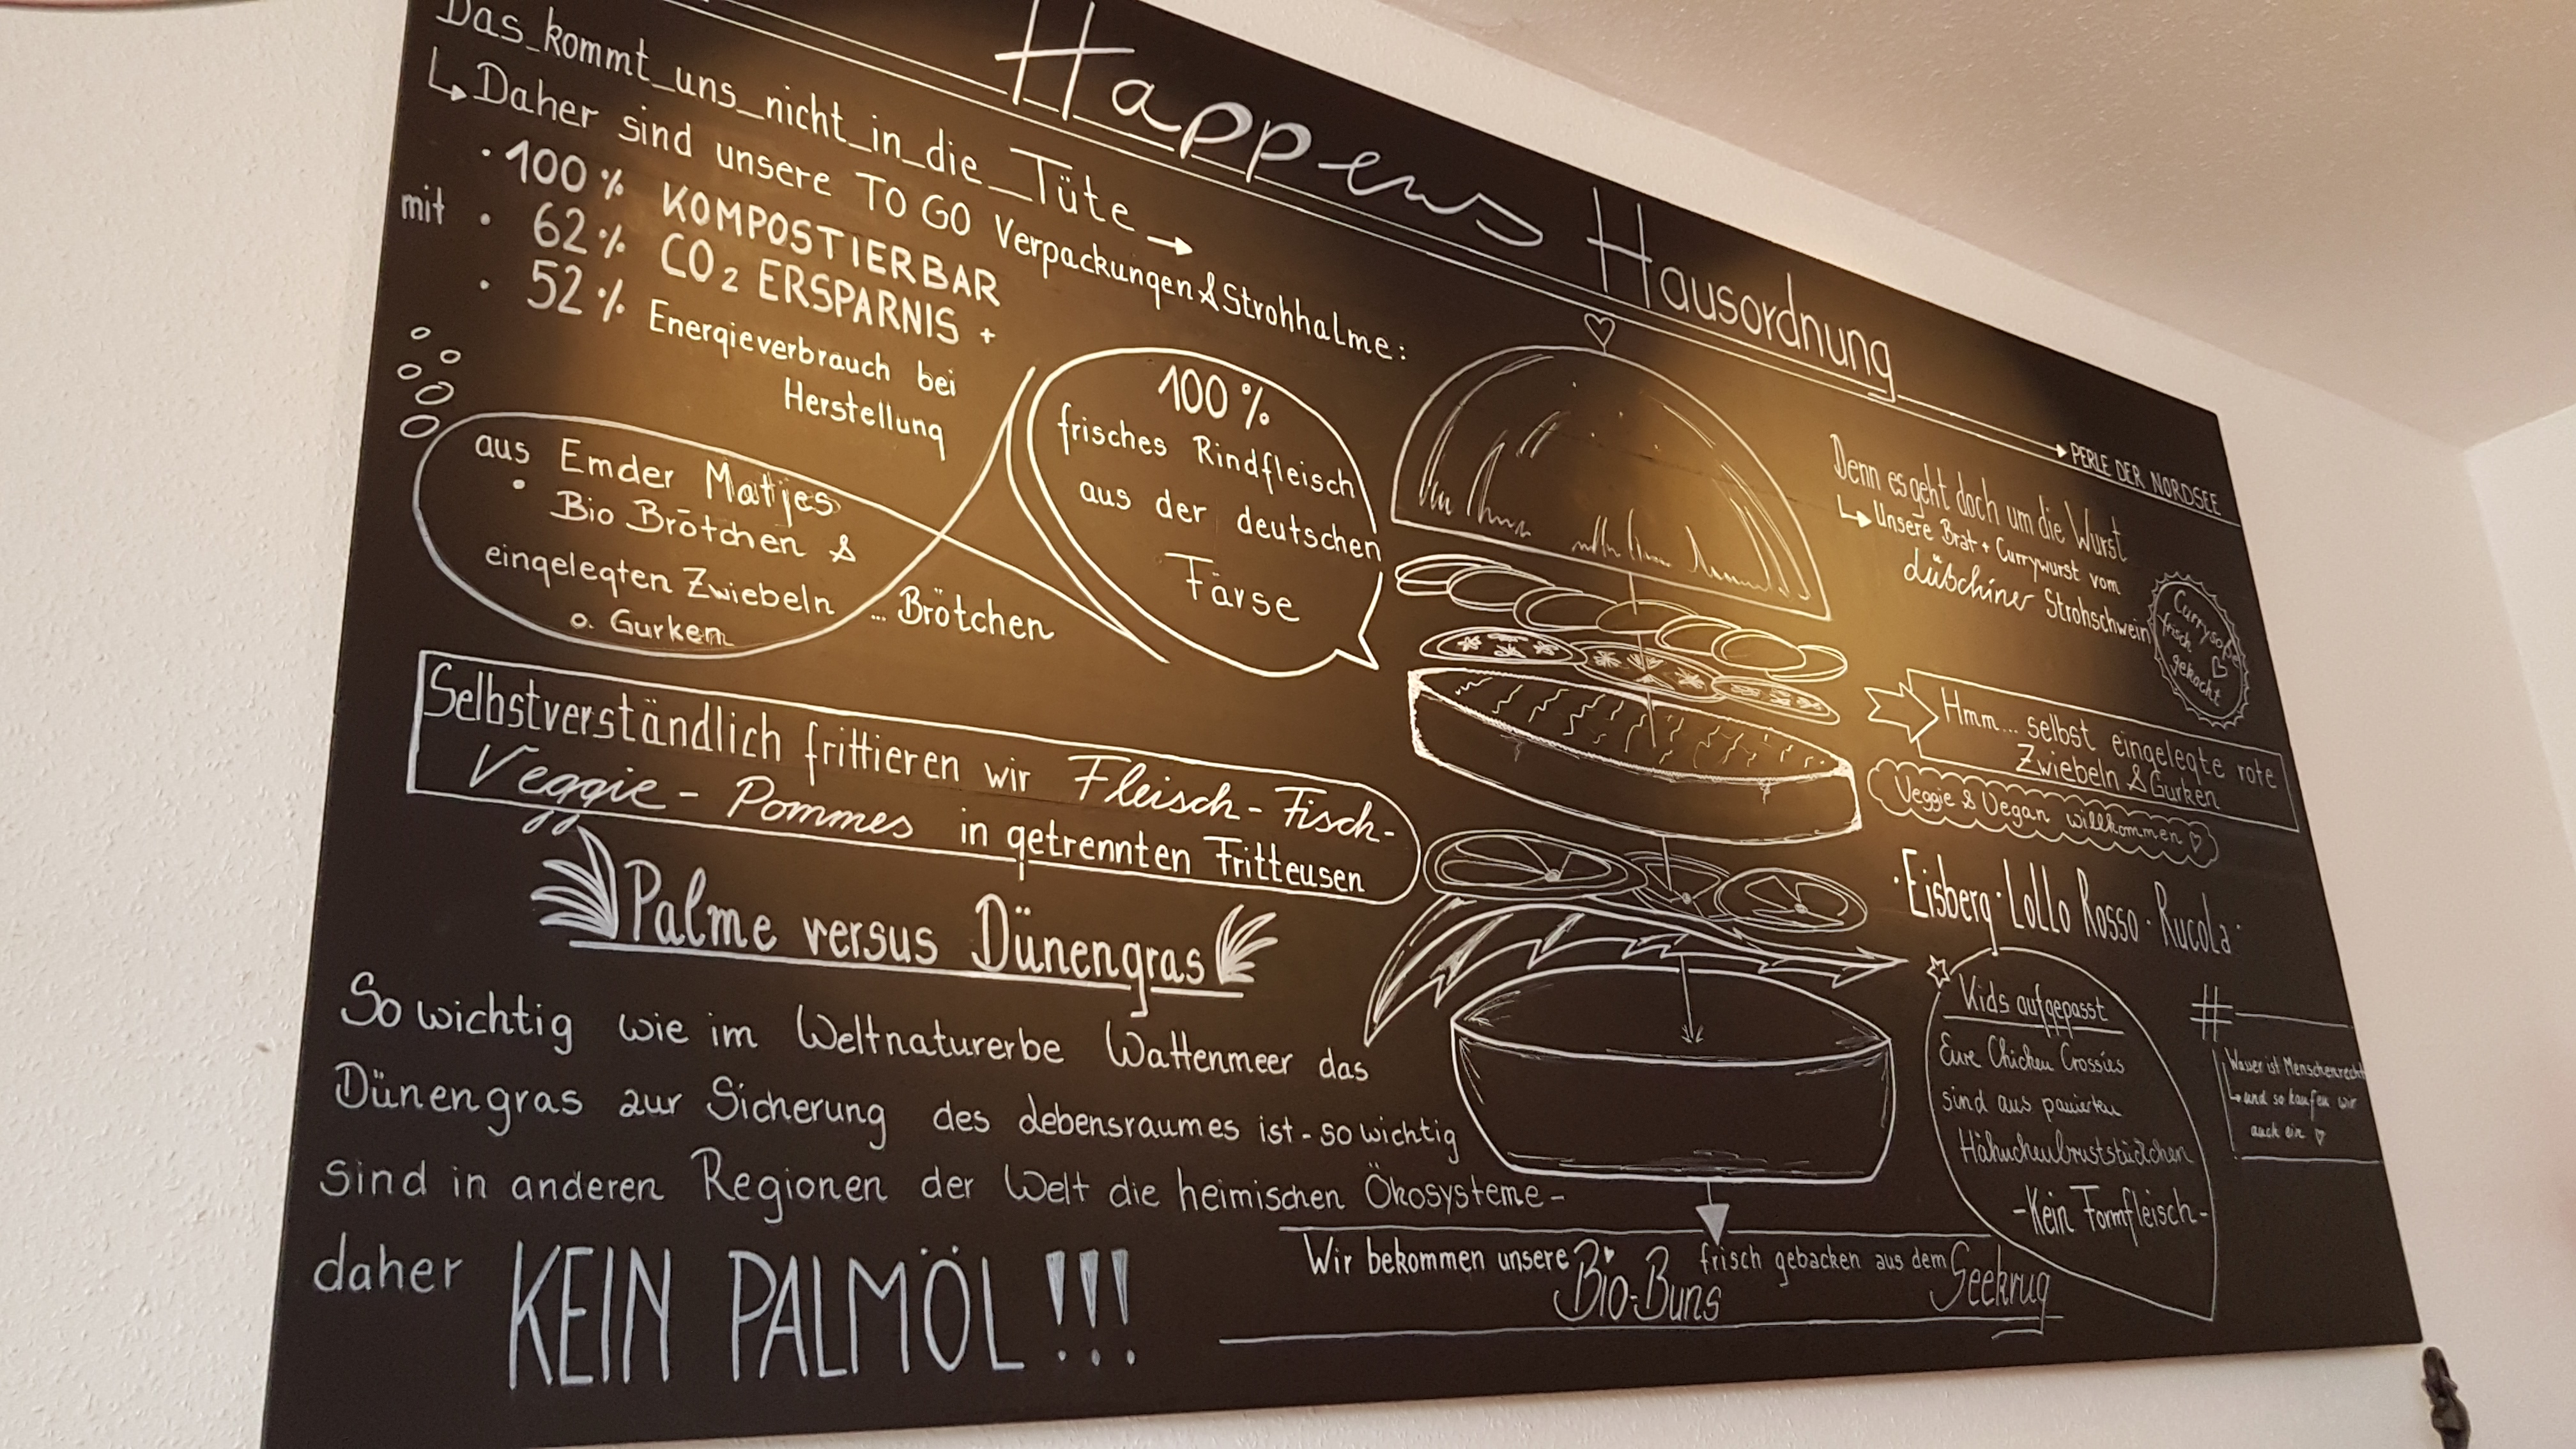 Happens Hausordnung
PERLE DER NORDSEE
Das_kommt_uns_nicht_in_die_Tüte
Daher sind unsere TO GO Verpackungen & Strohhalme:
· 100% KOMPOSTIERBAR
mit · 62% CO2 ERSPARNIS +
· 52% Energieverbrauch bei
Herstellung
aus Emder Matjes
Bio Brötchen &
eingelegten Zwiebeln
o. Gurken
... Brötchen
100%
frisches Rindfleisch
aus der deutschen
Färse
Selbstverständlich frittieren wir Fleisch-Fisch-
Veggie-Pommes in getrennten Fritteusen
Palme versus Dünengras
So wichtig wie im Weltnaturerbe Wattenmeer das
Dünengras zur Sicherung des Lebensraumes ist - so wichtig
sind in anderen Regionen der Welt die heimischen Ökosysteme -
daher KEIN PALMÖL!!!
Denn es geht doch um die Wurst
Unsere Brat + Currywurst vom
düschiner Strohschwein
Currysoße
frisch
gekocht
Hmm... selbst eingelegte rote
Zwiebeln & Gurken
Veggie & Vegan willkommen
· Eisberg · Lollo Rosso · Rucola ·
Kids aufgepasst
Eure Chicken Crossies
sind aus panierten
Hähnchenbruststückchen
- Kein Formfleisch -
#
Wasser ist Menschenrecht
und so kaufen wir
auch ein
Wir bekommen unsere Bio-Buns frisch gebacken aus dem Seekrug